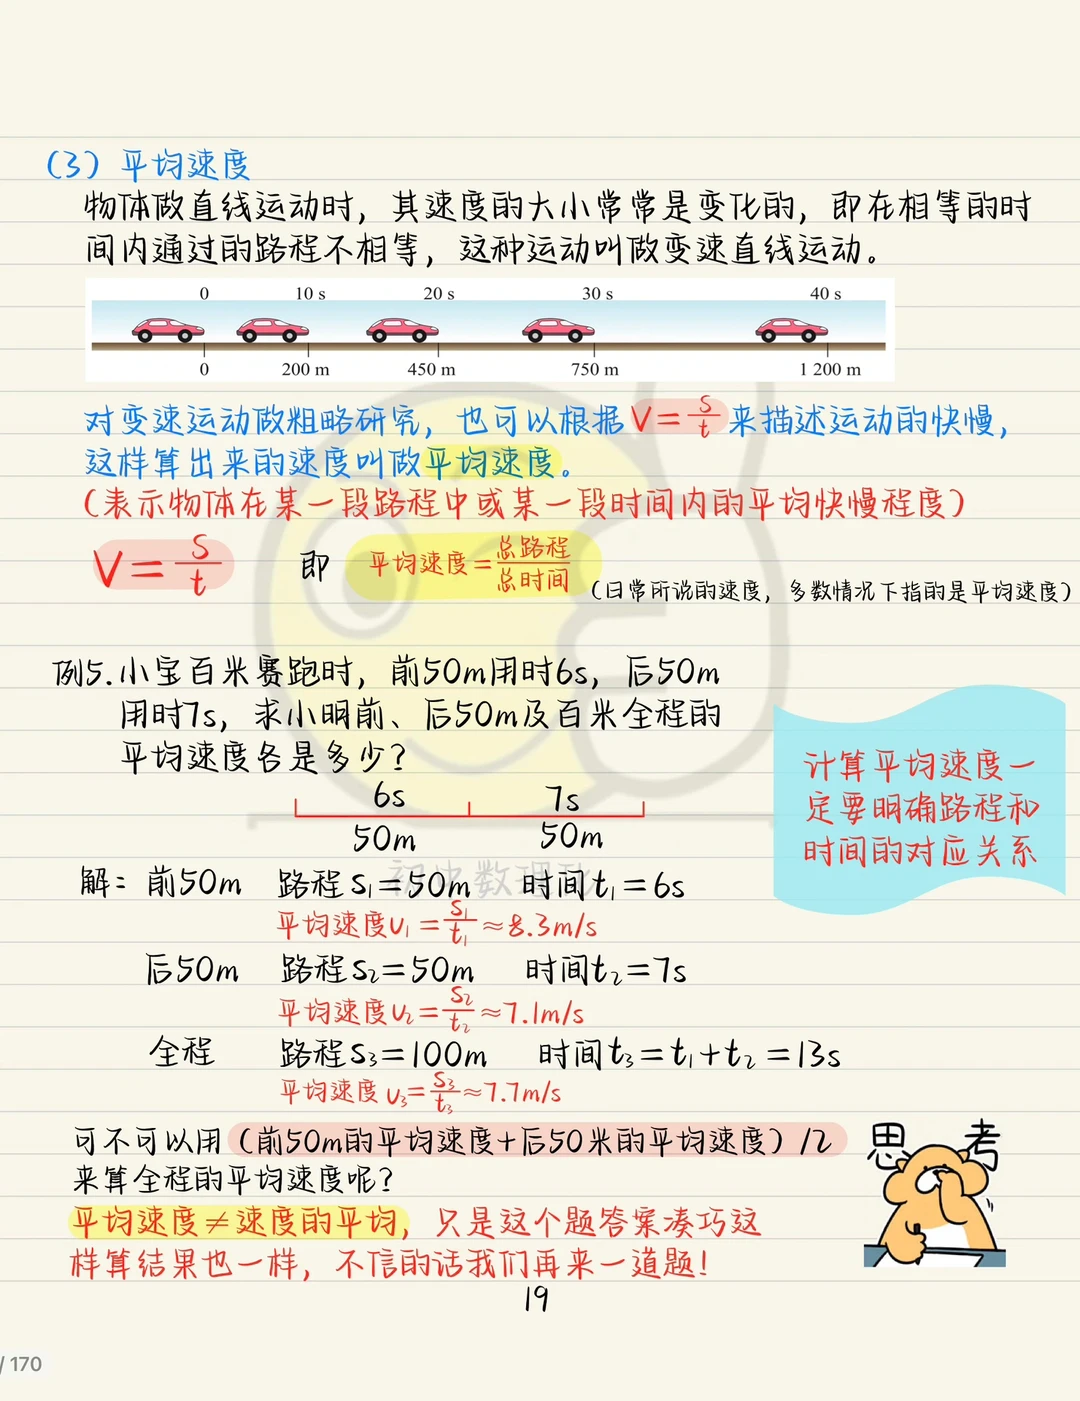 (3) 平均速度
物体做直线运动时，其速度的大小常常是变化的，即在相等的时
间内通过的路程不相等，这种运动叫做变速直线运动。
0 10 s 20 s 30 s 40 s
0 200 m 450 m 750 m 1 200 m
对变速运动做粗略研究，也可以根据V=s/t来描述运动的快慢，
这样算出来的速度叫做平均速度。
(表示物体在某一段路程中或某一段时间内的平均快慢程度)
V=s/t 即 平均速度=总路程/总时间 (日常所说的速度，多数情况下指的是平均速度)
例5.小宝百米赛跑时，前50m用时6s，后50m
用时7s，求小明前、后50m及百米全程的
平均速度各是多少？
计算平均速度一
定要明确路程和
时间的对应关系
6s 7s
50m 50m
初中数理化
解：前50m 路程s₁=50m 时间t₁=6s
平均速度υ₁=s₁/t₁≈8.3m/s
后50m 路程s₂=50m 时间t₂=7s
平均速度υ₂=s₂/t₂≈7.1m/s
全程 路程s₃=100m 时间t₃=t₁+t₂=13s
平均速度υ₃=s₃/t₃≈7.7m/s
可不可以用(前50m的平均速度+后50米的平均速度)/2
来算全程的平均速度呢？
思考
平均速度≠速度的平均，只是这个题答案凑巧这
样算结果也一样，不信的话我们再来一道题！
19
/ 170